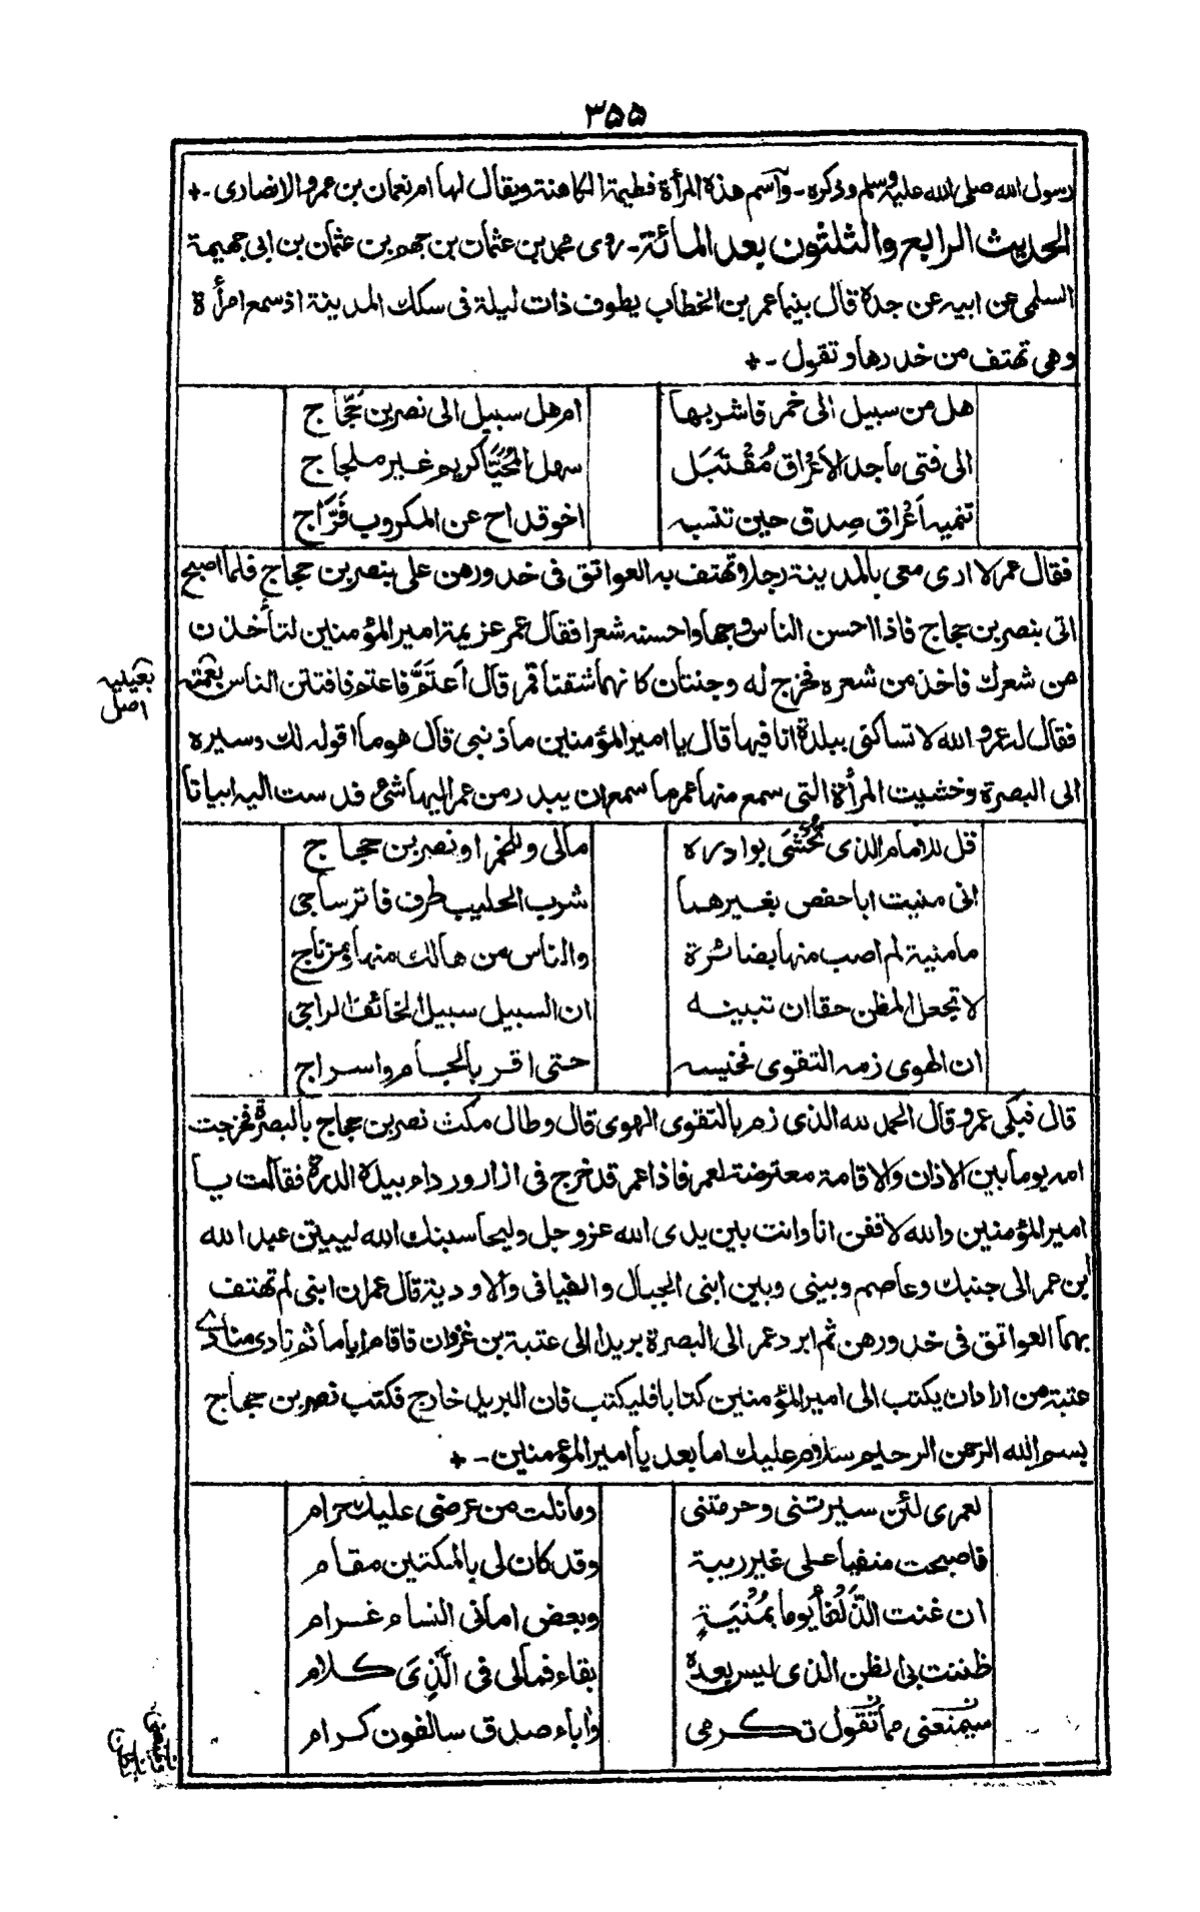 ٣٥٥
رسول الله صلى الله عليه وسلم وذكره - وآسم هذه المرأة فطيمة الكاهنة ويقال لها ام نعمان بن عمرو الانصارى - +
الحديث الرابع والثلثون بعد المائة - روى محمد بن عثمان بن جهم بن عثمان بن ابى جهيمة
السلمى عن ابيه عن جده قال بينما عمر بن الخطاب يطوف ذات ليلة فى سكك المدينة اذ سمع امرأة
وهى تهتف من خدرها وتقول - +
هل من سبيل الى خمر فاشربها ام هل سبيل الى نصر بن حَجّاج
الى فتى ماجد الاَعْراق مُقْتَبَل سهل المُحَيَّا كريم غير ملجاج
تنميه اَعْراق صِدق حين تنسبه اخو قداح عن المكروب فَرَّاج
فقال عمر لا ارى معى بالمدينة رجلا تهتف به العواتق فى خدورهن على بنصر بن حجاج فلما اصبح
اتى بنصر بن حجاج فاذا احسن الناس وجها واحسنه شعرا فقال عمر عزيمة امير المؤمنين لتأخذن
من شعرك فاخذ من شعره فخرج له وجنتان كانهما شقتا قمر قال اَعتَمَّ فاعتم فافتتن الناس بعمته
بعينيه
اصل
فقال له عمر والله لا تساكنى ببلدة انا فيها قال يا امير المؤمنين ما ذنبى قال هو ما اقوله لك وسيره
الى البصرة وخشيت المرأة التى سمع منها عمر ما سمع ان يبدر من عمر اليها شئ فدست اليه ابياتا
قل للامام الذى تُخْشَى بوادره مالى وللخمر او نصر بن حجاج
انى منيت ابا حفص بغيرهما شرب الحليب وطرف فاتر ساجى
ما منية لم اصب منها بضائرة والناس من هالك منها ومن ناج
لا تجعل الظن حقا ان تبينه ان السبيل سبيل الخائف الراجى
ان الهوى زمه التقوى فخيسه حتى اقر بالجام واسراج
قال فبكى عمر وقال الحمد لله الذى زم بالتقوى الهوى قال وطال مكث نصر بن حجاج بالبصرة فخرجت
امه يوما بين الاذان والاقامة معترضة لعمر فاذا عمر قد خرج فى ازار ورداء بيده الدرة فقالت يا
امير المؤمنين والله لاقفن انا وانت بين يدى الله عزوجل وليحاسبنك الله ليبيتن عبد الله
ابن عمر الى جنبك وعاصم وبينى وبين ابنى الجبال والفيافى والاودية قال عمر ان ابنى لم تهتف
بهما العواتق فى خدورهن ثم ابرد عمر الى البصرة بريدا الى عتبة بن غزوان فاقام اياما ثم نادى منادى
عتبة من اراد ان يكتب الى امير المؤمنين كتابا فليكتب فان البريد خارج فكتب نصر بن حجاج
بسم الله الرحمن الرحيم سلام عليك اما بعد يا امير المؤمنين - +
لعمرى لئن سيرتنى وحرمتنى وما نلت من عرضى عليك حرام
فاصبحت منفيا على غير ريبة وقد كان لى بالمكتين مقام
ان غنت الذَّلْفا يوما بمُنْيَةٍ وبعض امانى النساء غرام
ظننت بى الظن الذى ليس بعده بقاء فمالى فى الَّذِى كلام
سيمنعنى مما تقول تكرمى واباء صدق سالفون كرام